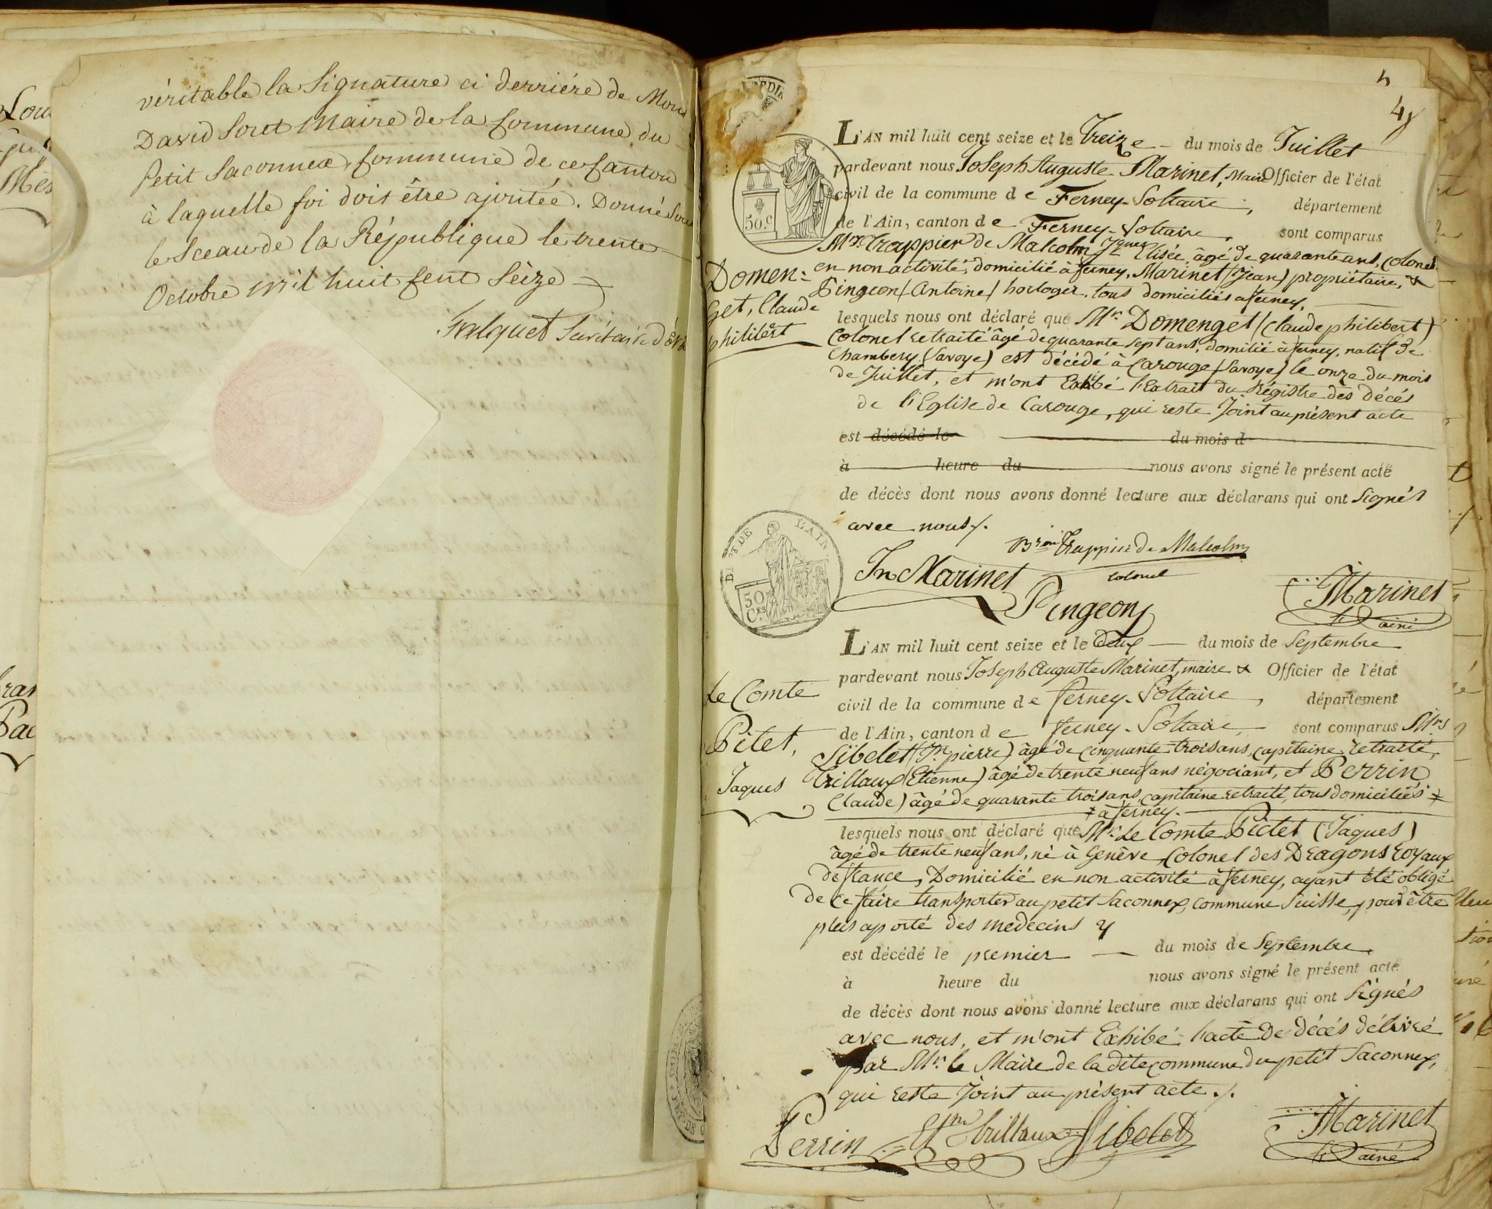 véritable la Signature ci derriére de Mons
David Soret Maire de la Commune du
Petit Saconnex Commune de ce Canton
à laquelle foi doit être ajoutée. Donné Sous
le Sceau de la République le trente
Octobre mil huit cent Seize
48
L'AN mil huit cent seize et le Treize du mois de Juillet
pardevant nous Joseph Auguste Marinet, Maire Officier de l'état
civil de la commune de Ferney-Voltaire, département
de l'Ain, canton de Ferney-Voltaire, sont comparus
Mr. Trappier de Malcolm Elisée, âgé de quarante ans, colonel
en non activité, domicilié à ferney, Marinet (Jean) propriétaire, &
Pingeon (Antoine) horloger, tous domiciliés a ferney
Domen-
get, Claude
philibert
lesquels nous ont déclaré que Mr. Domenget (Claude philibert)
Colonel retraité âgé de quarante sept ans, domilié à ferney, natif de
Chambery (Savoye) est décédé à Carouge (Savoye) le onze du mois
de Juillet, et m'ont Exhibé l'Extrait du Régistre des décés
de l'Eglise de Carouge, qui reste Joint au présent acte
est décédé le du mois d
à heure du nous avons signé le présent acte
de décès dont nous avons donné lecture aux déclarans qui ont signés
avec nous ./.
Bron Trappier de Malcolm
colonel
Jn Marinet
Pingeon
Marinet
ainé
50 c.
DEPT DE L'AIN
50 Ces
L'AN mil huit cent seize et le deux du mois de Septembre
pardevant nous Joseph Auguste Marinet, maire & Officier de l'état
civil de la commune de Ferney-Voltaire, département
de l'Ain, canton de Ferney-Voltaire, sont comparus Mrs
Sibelet (Jn pierre) âgé de cinquante trois ans, capitaine retraité,
Trillaux (Etienne) âgé de trente neuf ans négociant, et Perrin
(Claude) âgé de quarante trois ans, capitaine retraité, tous domiciliés
à ferney.
Le Comte
Pictet,
Jaques
lesquels nous ont déclaré que Mr. Le Comte Pictet (Jaques)
âgé de trente neuf ans, né à Genève, Colonel des Dragons royaux
de france, Domicilié en non activité à ferney, ayant été obligé
de ce faire transporter au petit Saconnex, commune Suisse, pour être
plus aporté des medecins y
est décédé le premier du mois de Septembre
à heure du nous avons signé le présent acte
de décès dont nous avons donné lecture aux déclarans qui ont signés
avec nous, et m'ont Exhibé l'acte de décés délivré
par Mr. le Maire de la dite commune du petit Saconnex,
qui reste Joint au présent acte ./.
Perrin
Etne Trillaux
Sibelet
Marinet
ainé